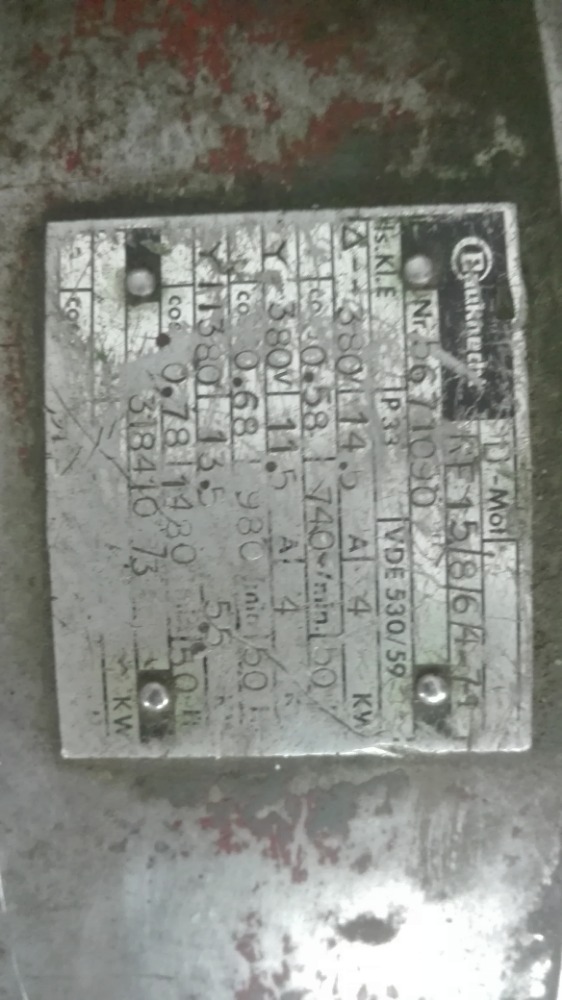 Bauknecht
D-Mot.
RE 15/8/6/4-71
Nr. 5671090
Is.Kl.E P 33 VDE 530/59
Δ 380V 14.5 A 4 KW
cos 0.58 740 /min 50
Y 380V 11.5 A 4
cos 0.68 980 /min 50
380 13.5 5.5
cos 0.78 1480 50
318410 73
KW
cos